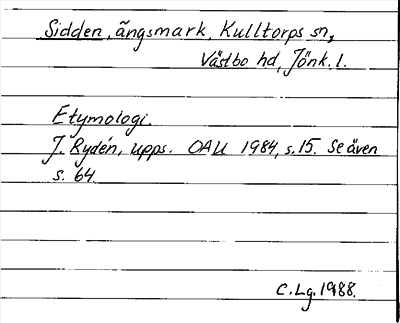 Sidden, ängsmark, Kulltorps sn,
Västbo hd, Jönk. l.
Etymologi.
J. Rydén, upps. OAU 1984, s. 15. Se även
s. 64.
C. Lg. 1988.